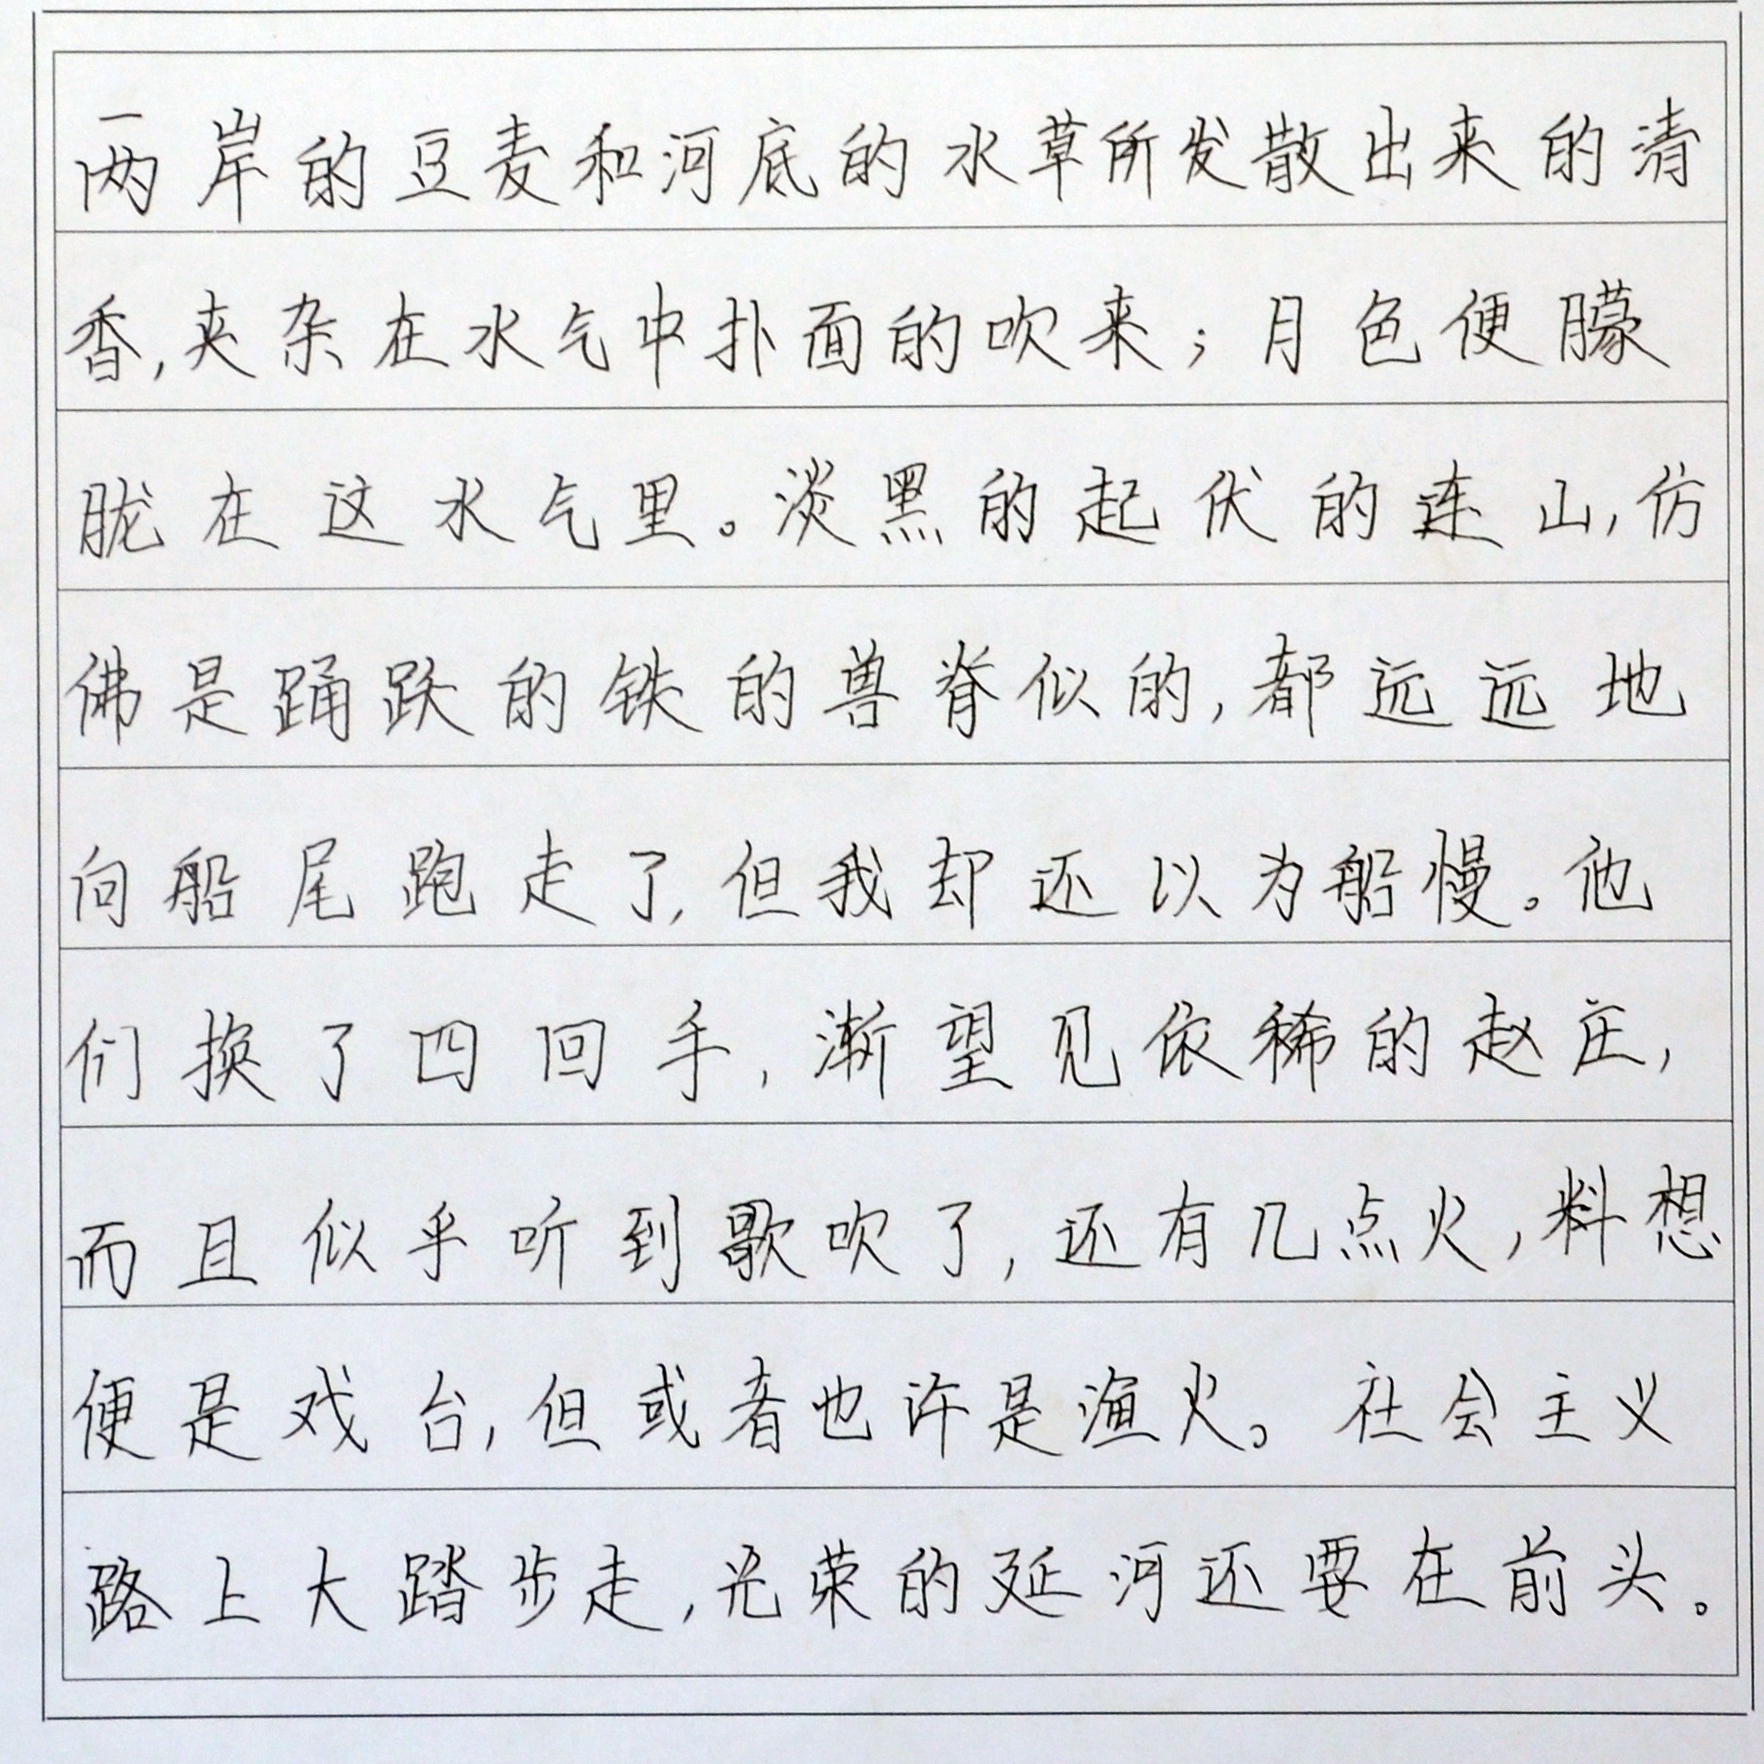 两岸的豆麦和河底的水草所发散出来的清
香,夹杂在水气中扑面的吹来;月色便朦
胧在这水气里。淡黑的起伏的连山,仿
佛是踊跃的铁的兽脊似的,都远远地
向船尾跑走了,但我却还以为船慢。他
们换了四回手,渐望见依稀的赵庄,
而且似乎听到歌吹了,还有几点火,料想
便是戏台,但或者也许是渔火。社会主义
路上大踏步走,光荣的延河还要在前头。